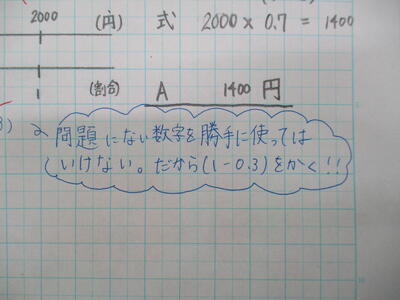 2000 (円) 式 2000 × 0.7 = 1400
1 (割合) A 1400 円
問題にない数字を勝手に使っては
いけない。だから(1-0.3)をかく!!